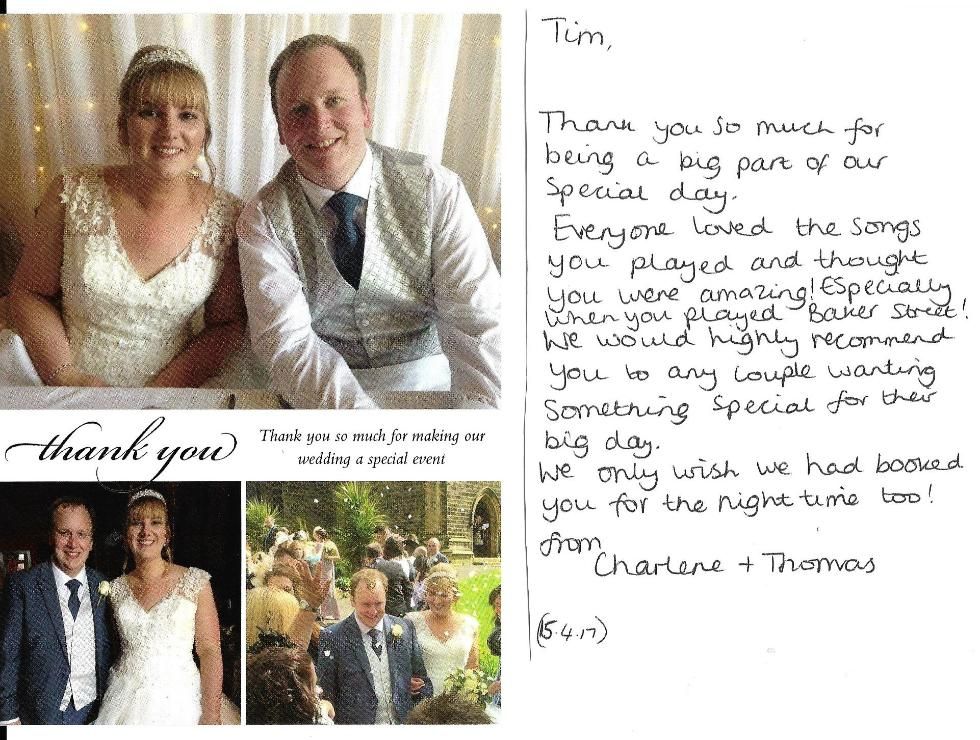 thank you
Thank you so much for making our
wedding a special event
Tim,
Thank you so much for
being a big part of our
Special day.
Everyone loved the songs
you played and thought
you were amazing! Especially
when you played Baker Street!
We would highly recommend
you to any couple wanting
Something special for their
big day.
We only wish we had booked
you for the night time too!
from
Charlene + Thomas
(15.4.17)